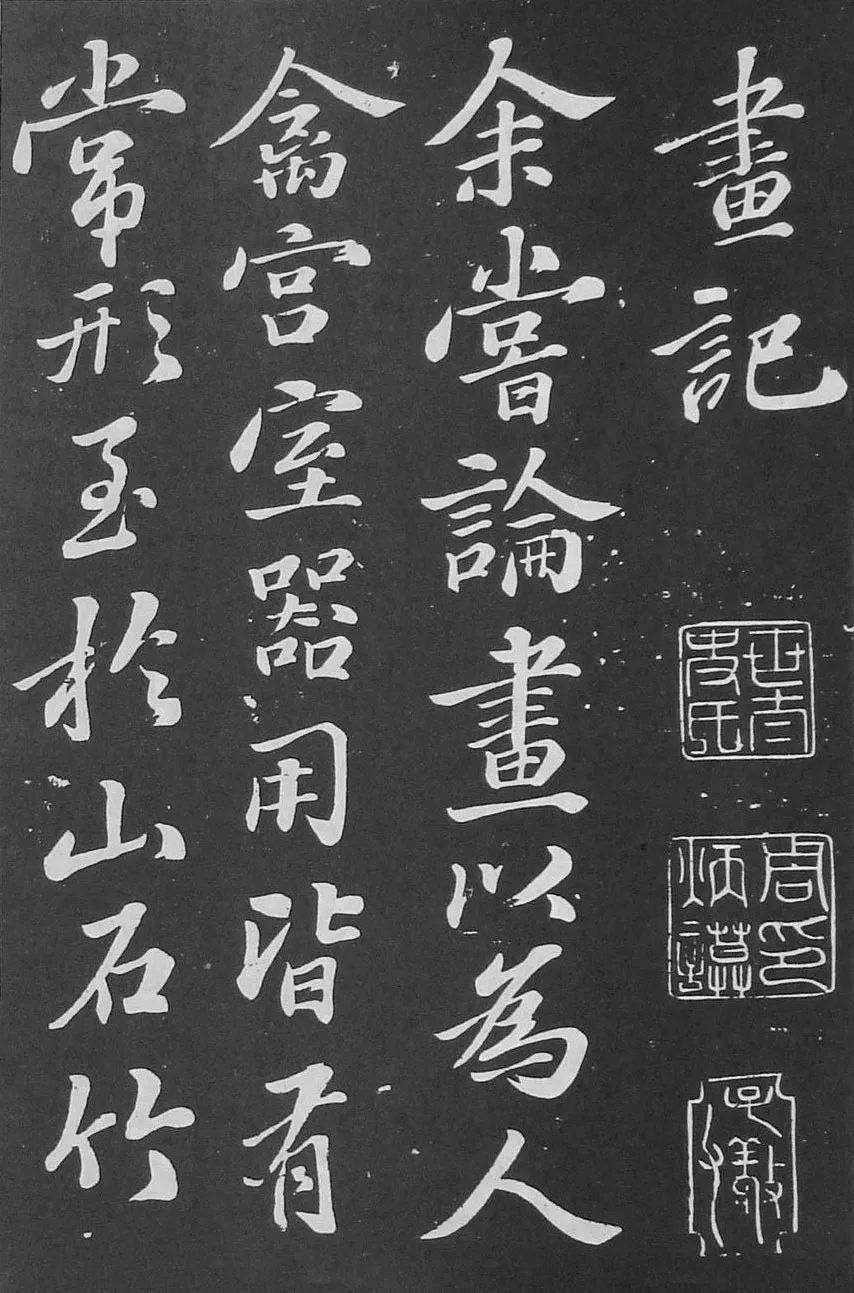 畫記
周印炳謨
余嘗論畫以為人
禽宮室器用皆有
常形至於山石竹